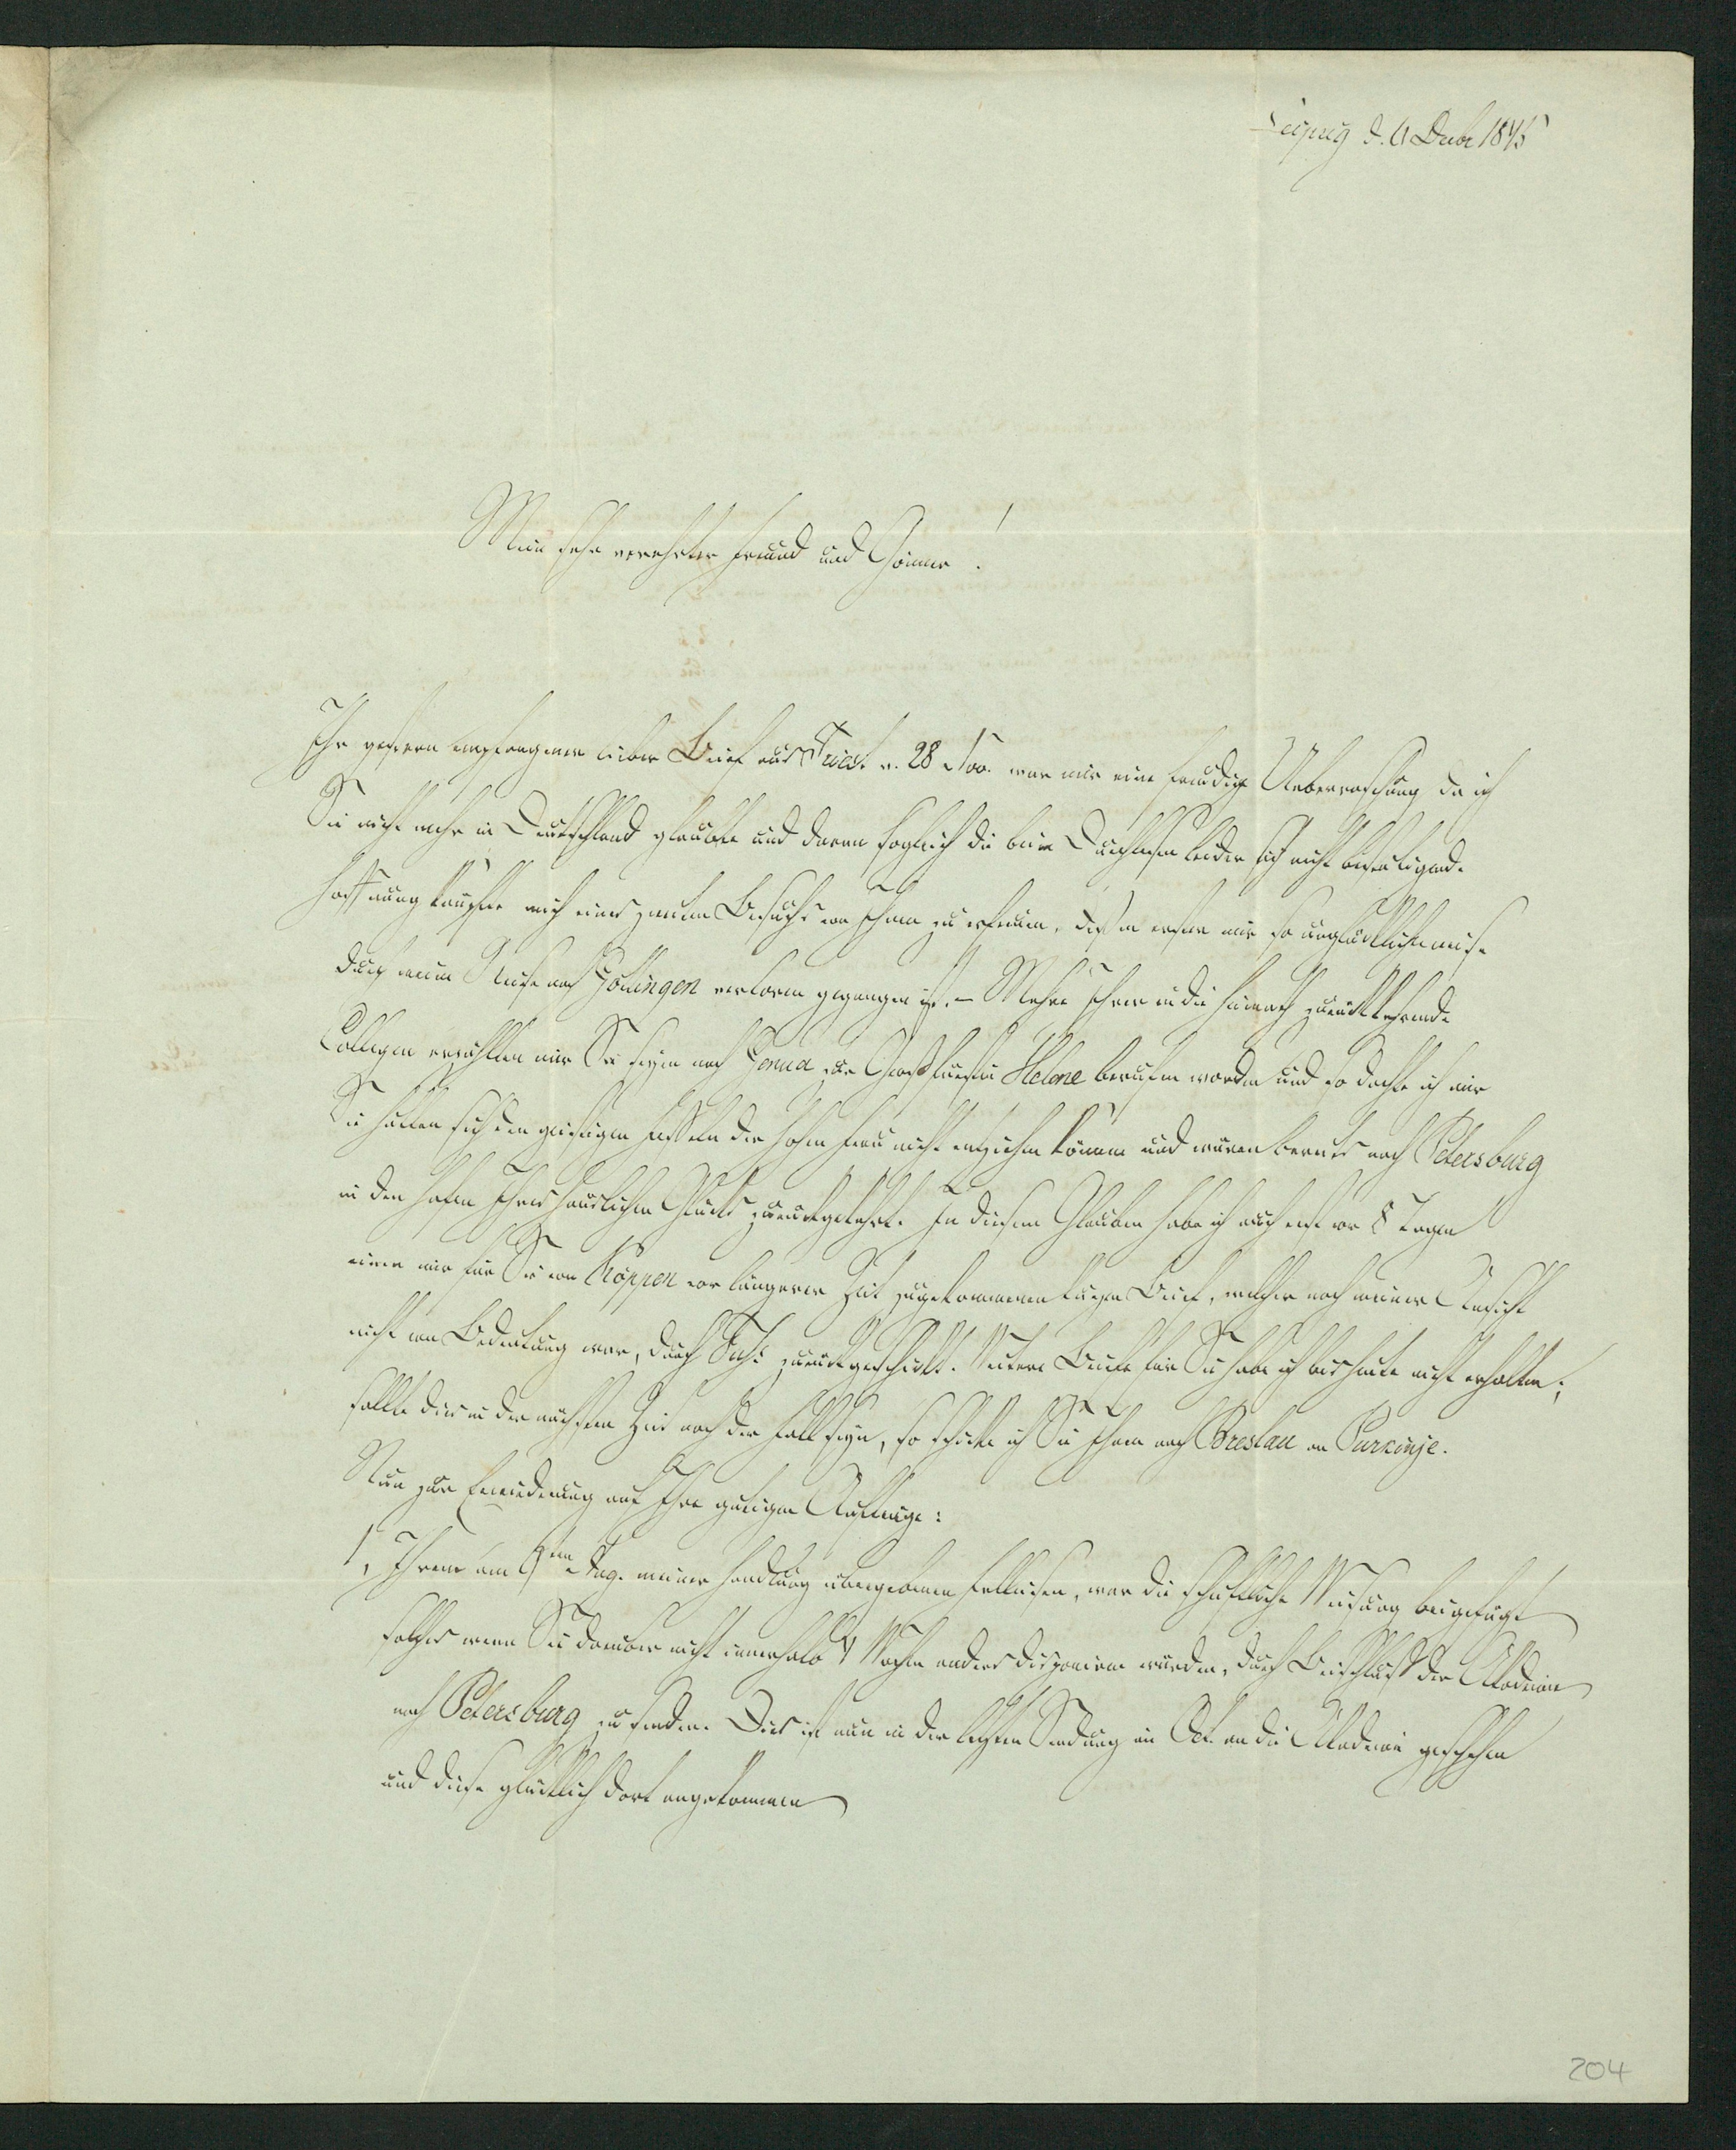 Leipzig d. 6 Decbr 1845
Mein sehr verehrter Freund und Gönner!
Ihr gestern empfangener lieber Brief aus Triest v. 28 Nov. war mir eine freudige Ueberraschung, da ich
Sie nicht mehr in Deutschland glaubte und daran sogleich die beim Durchlesen leider sich nicht bestätigende
Hoffnung knüpfte mich eines zweiten Besuchs von Ihnen zu erfreuen, dessen erster mir so unglücklicherweise
durch meine Reise nach Göttingen verloren gegangen ist. – Mehre Ihrer in die Heimath zurückkehrende
Collegen erzählten mir Sie seyen nach Genua zur Großfürstin Helene berufen worden und so dachte ich mir
Sie hätten sich den geistigen Fesseln der hohen Frau nicht entziehen können und wären bereits nach Petersburg
in den Hafen Ihres häuslichen Glücks zurückgekehrt. In diesem Glauben habe ich auch erst vor 8 Tagen
einen mir für Sie von Köppen vor längerer Zeit zugekommenen kurzen Brief, welcher nach meiner Ansicht
nicht von Bedeutung war, durch zurückgeschickt. Weitere Briefe für Sie habe ich bis heute nicht erhalten;
sollte dies in der nächsten Zeit noch der Fall seyn, so schicke ich Sie Ihnen nach Breslau an Purkinje.
Nun zur Erwiederung auf Ihre gütigen Aufträge:
1, Ihrem am 9ten Aug. meiner Handlung übergebenen Felleisen, war die schriftliche Weisung beigefügt
solches wenn Sie darüber nicht innerhalb 4 Wochen anders disponiren würden, durch Beischluß der Akademie
nach Petersburg zu senden. Dies ist nun in der letzten Sendung im Oct. an die Akademie geschehen
und diese glücklich dort angekommen
204